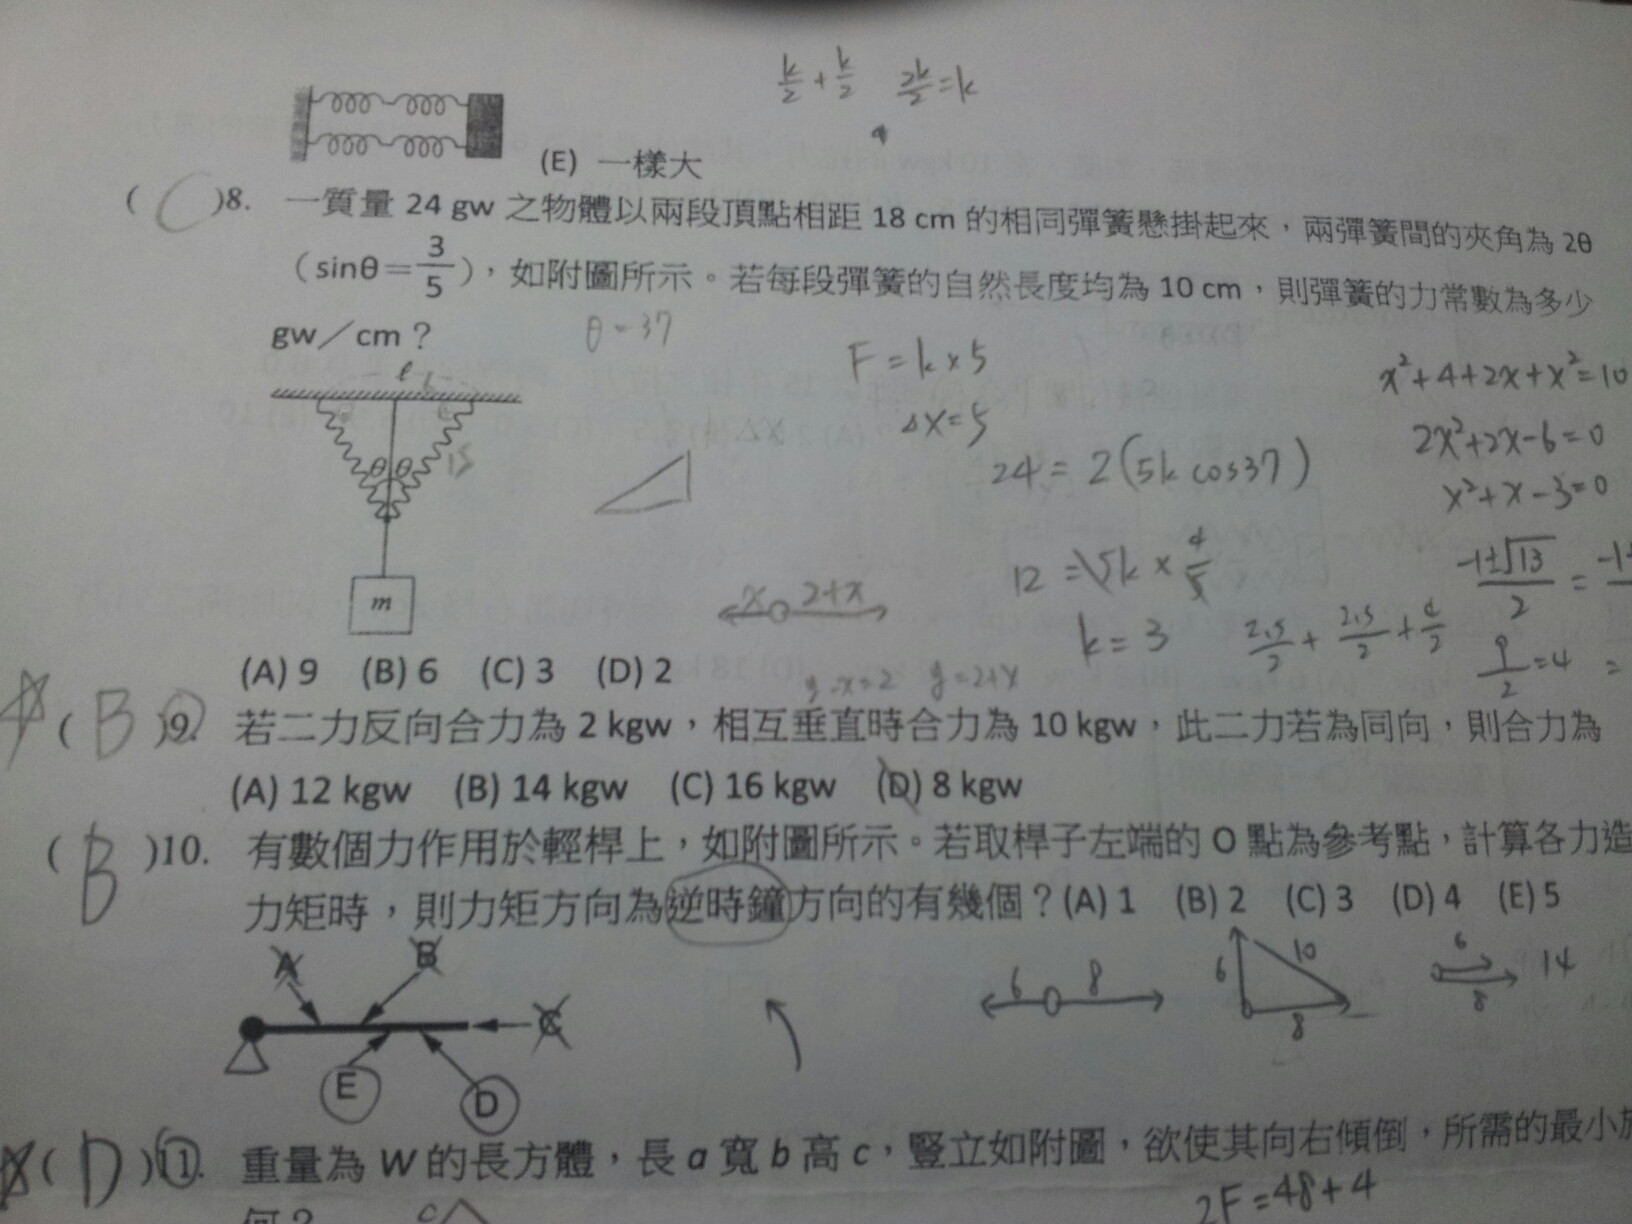 k/2 + k/2 2k/2 = k
(E) 一樣大
( C )8. 一質量 24 gw 之物體以兩段頂點相距 18 cm 的相同彈簧懸掛起來，兩彈簧間的夾角為 2θ
（sinθ＝3/5），如附圖所示。若每段彈簧的自然長度均為 10 cm，則彈簧的力常數為多少
gw／cm？
θ = 37
F = k × 5
Δx = 5
24 = 2(5k cos37)
12 = 5k × 4/5
k = 3
x²+4+2x+x²=10
2x²+2x-6=0
x²+x-3=0
-1±√13/2 =
2.5/2 + 2.5/2 + 4/2
9/2 = 4 =
ℓ
15
θ θ
m
x 2+x
(A) 9 (B) 6 (C) 3 (D) 2
y-x=2 y=2+x
( B )9. 若二力反向合力為 2 kgw，相互垂直時合力為 10 kgw，此二力若為同向，則合力為
(A) 12 kgw (B) 14 kgw (C) 16 kgw (D) 8 kgw
( B )10. 有數個力作用於輕桿上，如附圖所示。若取桿子左端的 O 點為參考點，計算各力造
力矩時，則力矩方向為逆時鐘方向的有幾個？(A) 1 (B) 2 (C) 3 (D) 4 (E) 5
A B C
E D
6 8
6 10 8
6 8 14
( D )11. 重量為 W 的長方體，長 a 寬 b 高 c，豎立如附圖，欲使其向右傾倒，所需的最小
何？
c
2F=48+4